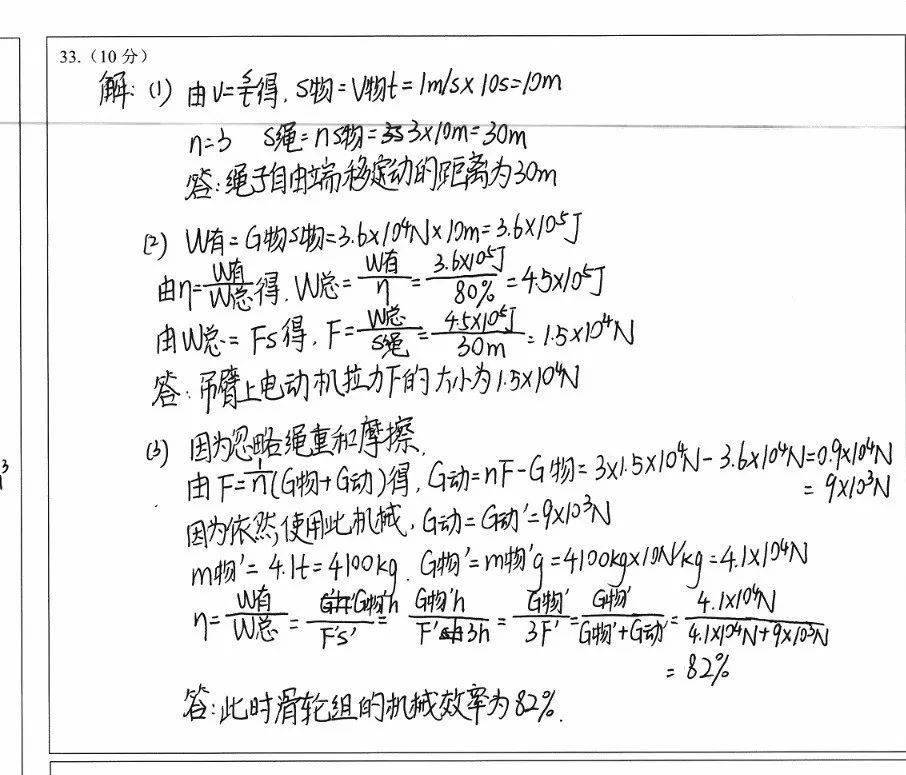 33.（10 分）
解: (1) 由v=s/t得, S物=V物t=1m/s×10s=10m
n=3 S绳=nS物=3×10m=30m
答:绳子自由端移动的距离为30m
(2) W有=G物S物=3.6×10⁴N×10m=3.6×10⁵J
由η=W有/W总得, W总=W有/η=3.6×10⁵J/80%=4.5×10⁵J
由W总=Fs得, F=W总/S绳=4.5×10⁵J/30m=1.5×10⁴N
答:吊臂上电动机拉力F的大小为1.5×10⁴N
(3) 因为忽略绳重和摩擦,
由F=1/n(G物+G动)得, G动=nF-G物=3×1.5×10⁴N-3.6×10⁴N=0.9×10⁴N
=9×10³N
因为依然使用此机械, G动=G动'=9×10³N
m物'=4.1t=4100kg. G物'=m物'g=4100kg×10N/kg=4.1×10⁴N
η=W有/W总=G物'h/F's'=G物'h/F'3h=G物'/3F'=G物'/G物'+G动'=4.1×10⁴N/4.1×10⁴N+9×10³N
=82%
答:此时滑轮组的机械效率为82%.
3